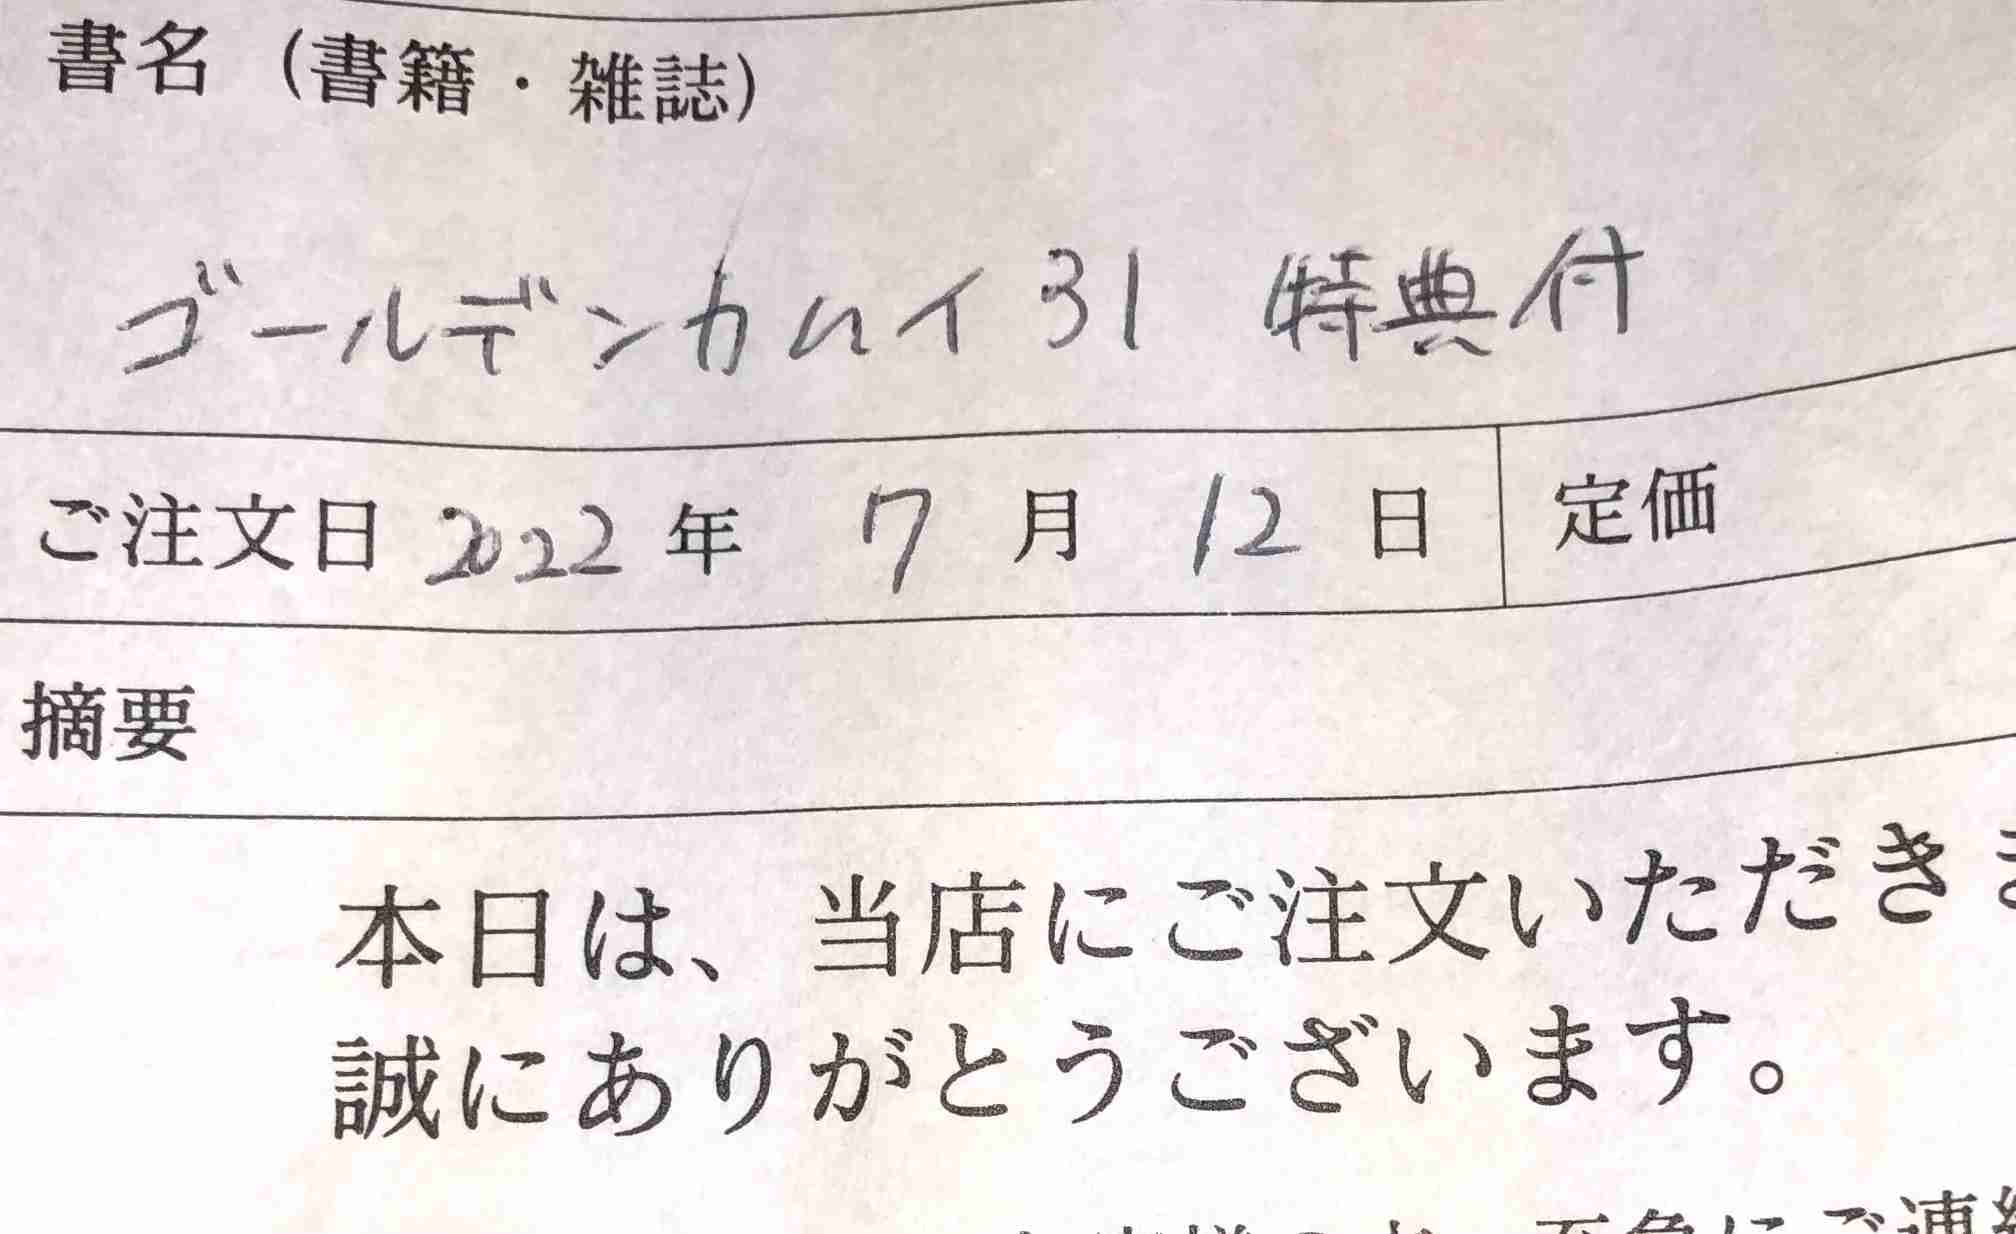 書名（書籍・雑誌）
ゴールデンカムイ31 特典付
ご注文日 2022 年 7 月 12 日 定価
摘要
本日は、当店にご注文いただき
誠にありがとうございます。